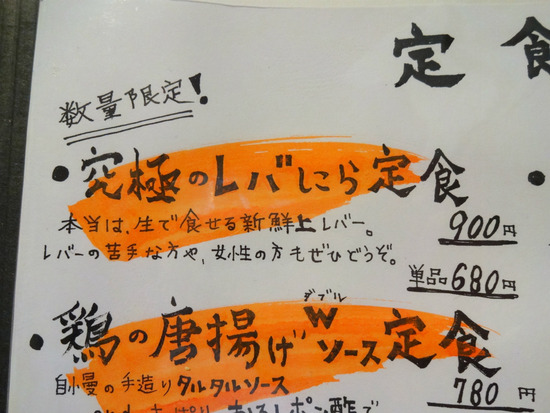 定食
数量限定!
•究極のレバにら定食
本当は、生で食せる新鮮上レバー。 900円
レバーの苦手な方や、女性の方もぜひどうぞ。
単品680円
ダブル
•鶏の唐揚げWソース定食
自慢の手造りタルタルソース 780円
ポン酢で